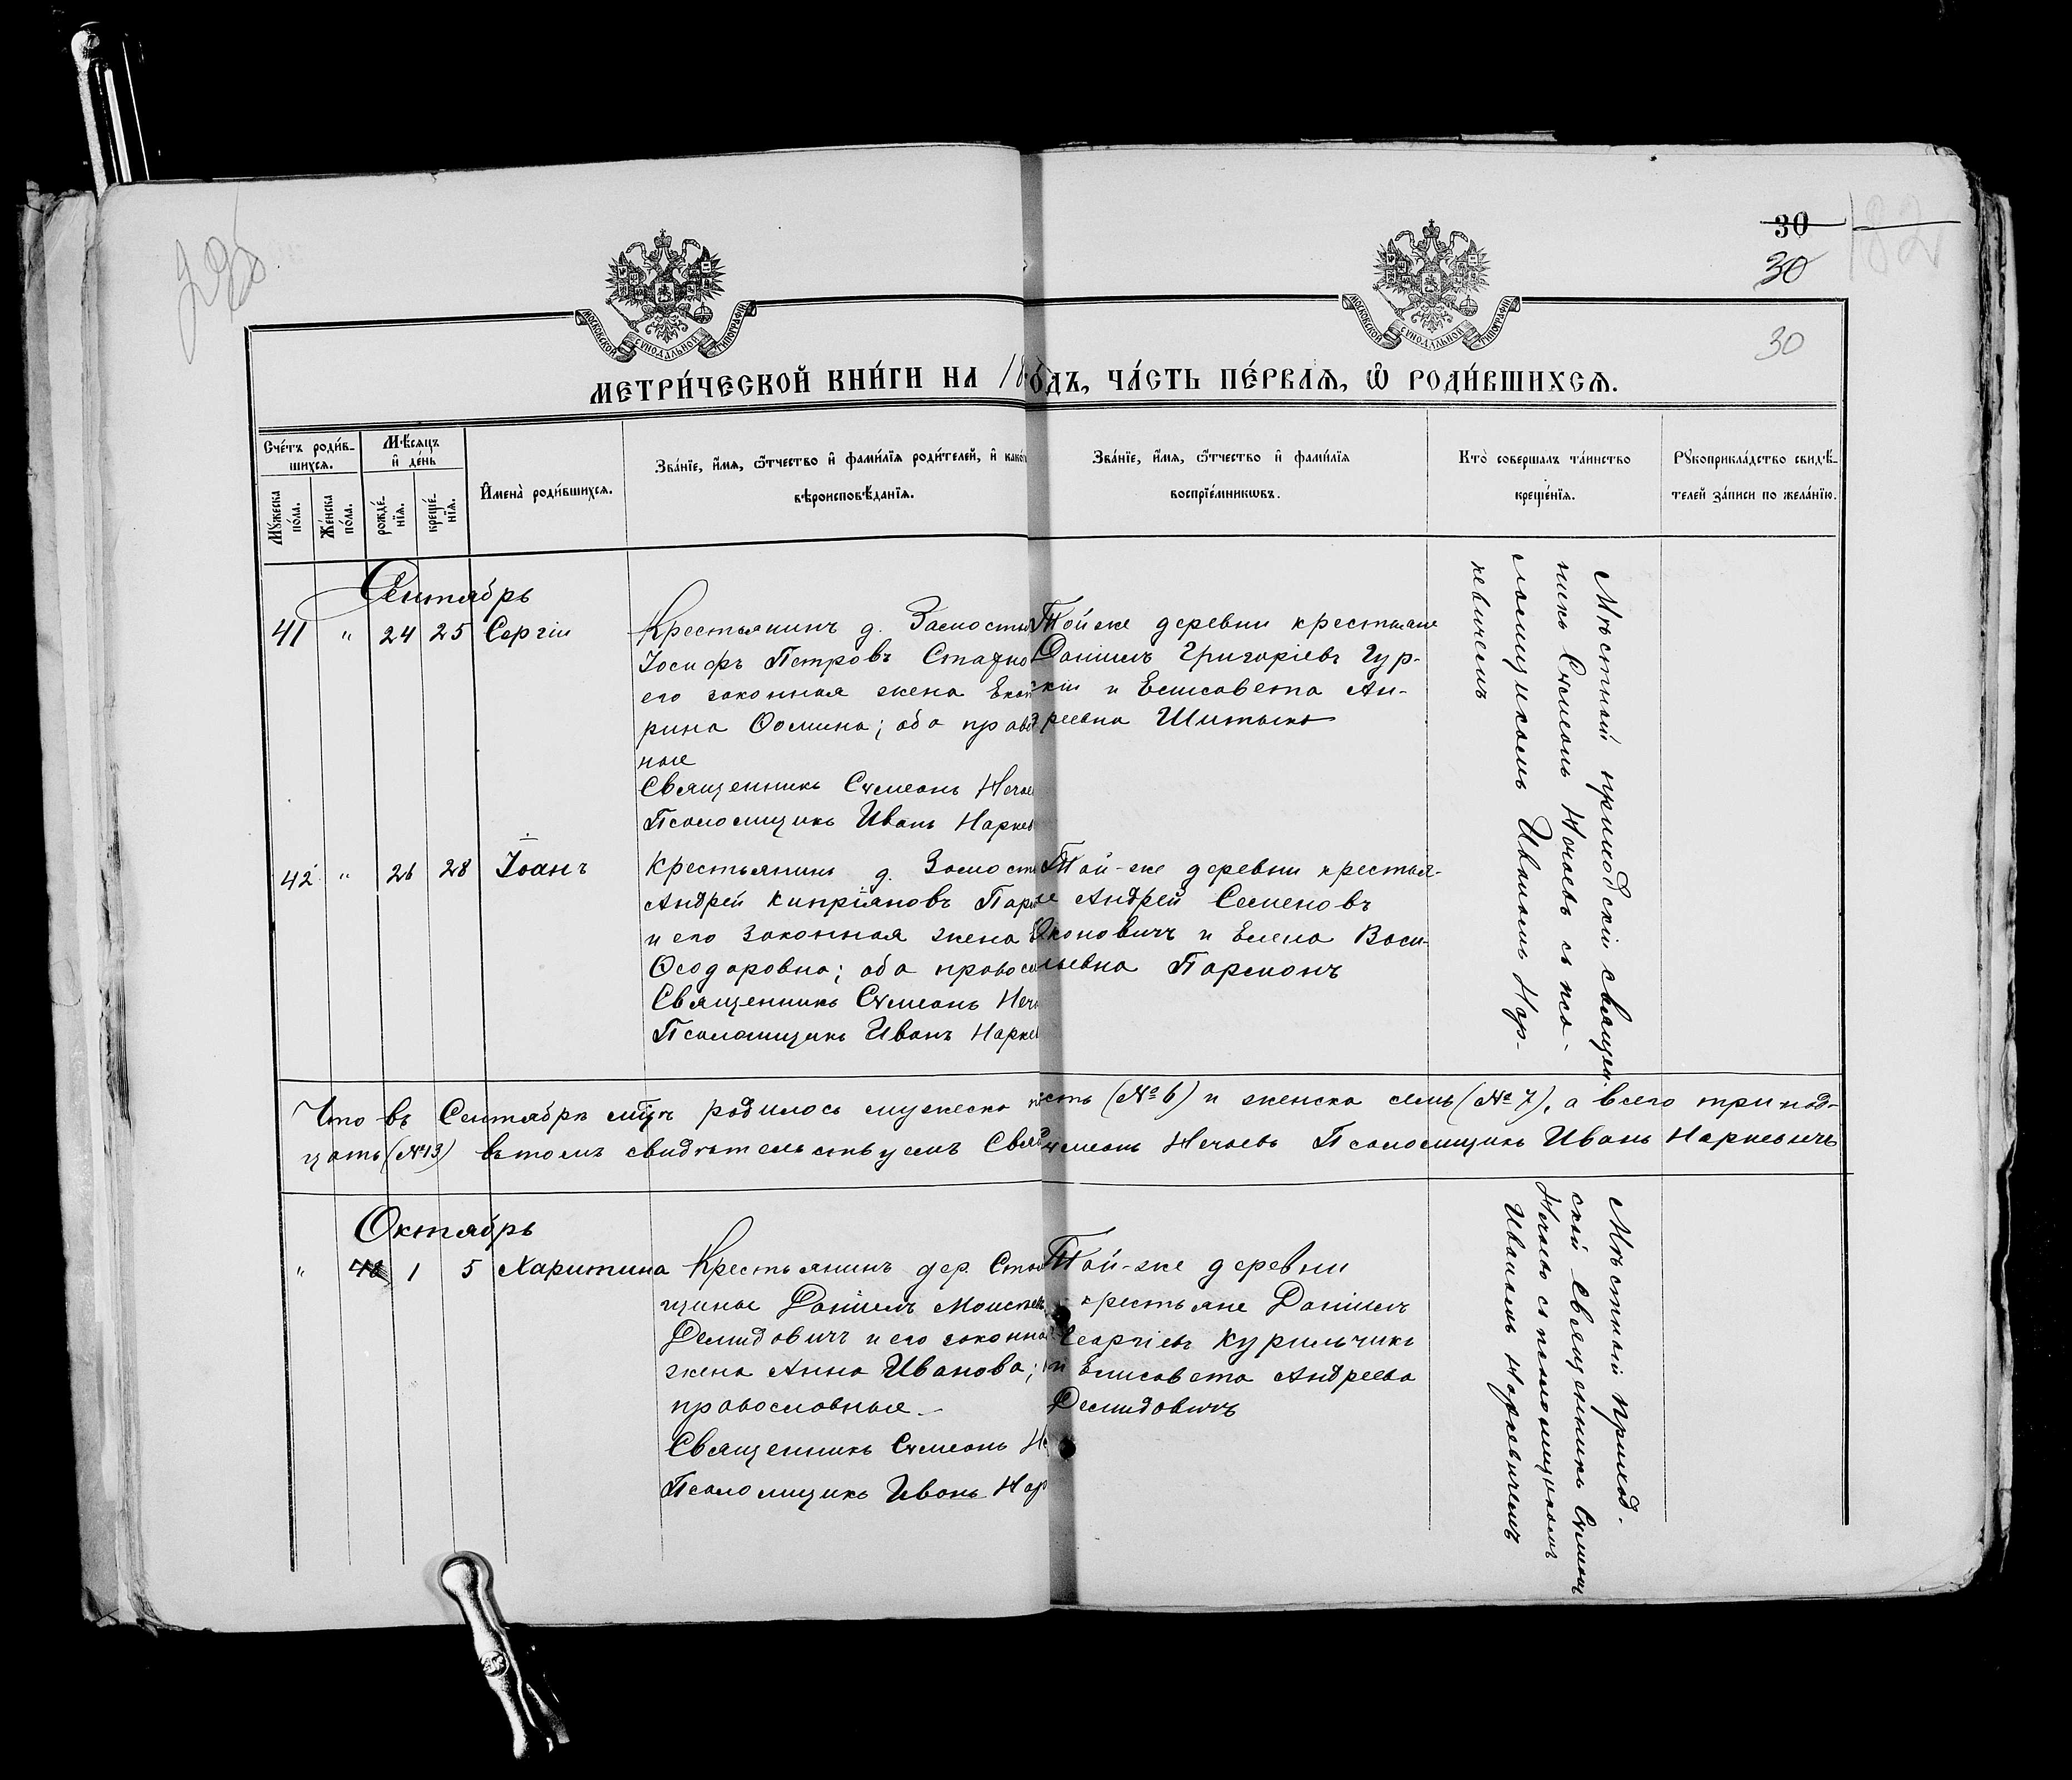 30
30
30
МОСКОВСКОЙ СѴНОДАЛЬНОЙ ТИПОГРАФІИ
МОСКОВСКОЙ СѴНОДАЛЬНОЙ ТИПОГРАФІИ
МЕТРИ́ЧЕСКОЙ КНИ́ГИ НА 18 ОДЪ, ЧА́СТЬ ПЕ́РВАѦ, Ѡ҆ РОДИ́ВШИХСѦ.
Сче́тъ роди́в-
шихсѧ.
Мꙋ́жеска по́ла.
Же́нска по́ла.
Мѣ́сѧцъ
и҆ де́нь
рожде́-
нїѧ.
креще́-
нїѧ.
И҆мена̀ роди́вшихсѧ.
Зва́нїе, и҆́мѧ, ѻ҆́тчество и҆ фами́лїѧ роди́телей, и҆ како
вѣроисповѣ́данїѧ.
Зва́нїе, и҆́мѧ, ѻ҆́тчество и҆ фами́лїѧ
воспрїе́мникѡвъ.
Кто̀ соверша́лъ та́инство
креще́нїѧ.
Рꙋкоприкла́дство свидѣ́-
телей за́писи по жела́нїю.
Сентябрь
41 " 24 25 Сергій
Крестьянинъ д. Замостья
Іосифъ Петровъ
его законная жена Екат
рина Ѳомина; оба правос
ные
Священникъ Сѵмеонъ Нечае
Псаломщикъ Иванъ Наркев
Той же деревни крестьяне
Даніилъ Григоріевъ Гур-
кій и Елисавета Ан-
дреевна Шитыко
Мѣстный приходскій священ-
никъ Сѵмеонъ Нечаевъ съ пса-
ломщикомъ Иваномъ Нар-
кевичемъ
42 " 26 28 Іоанъ
Крестьянинъ д. Замость
Андрей Кипріяновъ Парм
и его законная жена
Ѳеодоровна; оба правосла
Священникъ Сѵмеонъ Неча
Псаломщикъ Иванъ Наркев
Той-же деревни крестья-
не Андрей Семеновъ
Якоповичъ и Елена Васи-
льевна Пармонъ
Что въ Сентябрѣ мѣцѣ родилось мужеска шесть (№ 6) и женска семь (№ 7), а всего тринад-
цать (№ 13) въ томъ свидѣтельствуемъ Свящ Сѵмеонъ Нечаевъ Псаломщикъ Иванъ Наркевичъ
Октябрь
" 1 5 Харитина
Крестьянинъ дер.
щины Даніилъ Моисеевъ
Демидовичъ и его законна
жена Анна Иванова;
православные
Священникъ Сѵмеонъ Не
Псаломщикъ Иванъ Нар
Той-же деревни
крестьяне Даніилъ
Георгіевъ Курильчикъ
и Елисавета Андреева
Демидовичъ
Мѣстный приход-
скій Священникъ Сѵмеонъ
Нечаевъ съ псаломщикомъ
Иваномъ Наркевичемъ